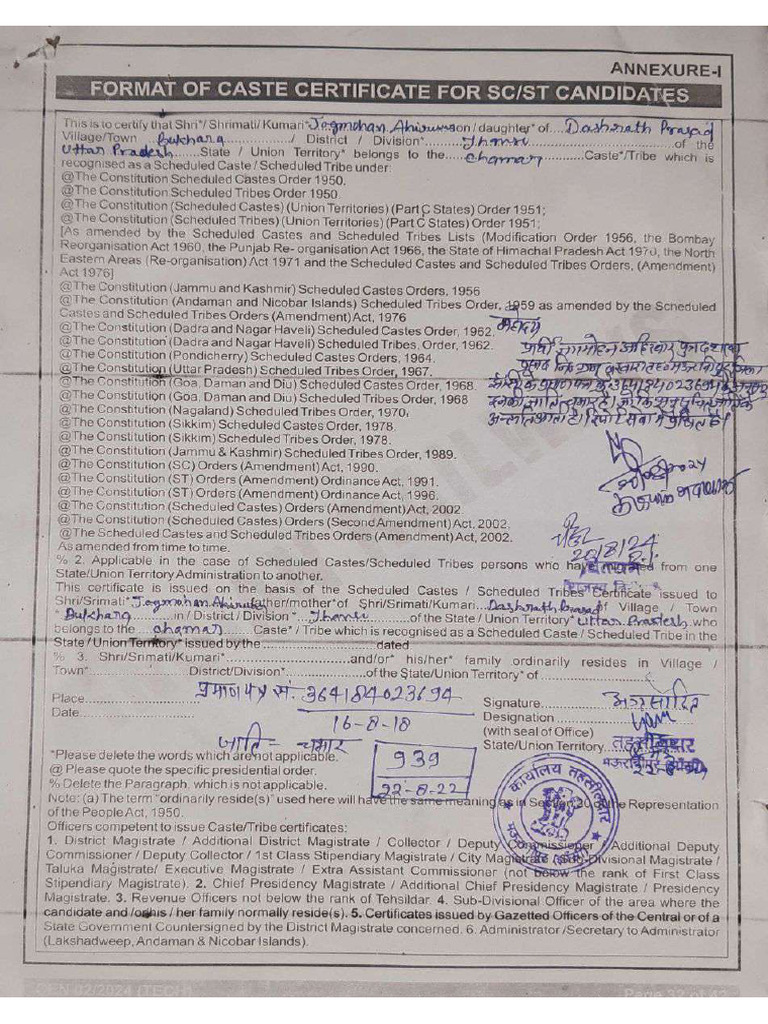 ANNEXURE-I
FORMAT OF CASTE CERTIFICATE FOR SC/ST CANDIDATES
This is to certify that Shri*/ Shrimati/ Kumari* Jagmohan Ahirwar son / daughter* of.... Dashrath Prasad
Village/Town Bukhara / District / Division* Jhansi of the
Uttar Pradesh State / Union Territory* belongs to the chamar Caste*/Tribe which is
recognised as a Scheduled Caste / Scheduled Tribe under:
@The Constitution Scheduled Castes Order 1950.
@The Constitution Scheduled Tribes Order 1950.
@The Constitution (Scheduled Castes) (Union Territories) (Part C States) Order 1951;
@The Constitution (Scheduled Tribes) (Union Territories) (Part C States) Order 1951;
[As amended by the Scheduled Castes and Scheduled Tribes Lists (Modification Order 1956, the Bombay
Reorganisation Act 1960, the Punjab Re- organisation Act 1966, the State of Himachal Pradesh Act 1970, the North
Eastern Areas (Re-organisation) Act 1971 and the Scheduled Castes and Scheduled Tribes Orders, (Amendment)
Act 1976]
@The Constitution (Jammu and Kashmir) Scheduled Castes Orders, 1956
@The Constitution (Andaman and Nicobar Islands) Scheduled Tribes Order, 1959 as amended by the Scheduled
Castes and Scheduled Tribes Orders (Amendment) Act, 1976
@The Constitution (Dadra and Nagar Haveli) Scheduled Castes Order, 1962.
@The Constitution (Dadra and Nagar Haveli) Scheduled Tribes, Order, 1962.
@The Constitution (Pondicherry) Scheduled Castes Orders, 1964.
@The Constitution (Uttar Pradesh) Scheduled Tribes Order, 1967.
@The Constitution (Goa, Daman and Diu) Scheduled Castes Order, 1968.
@The Constitution (Goa, Daman and Diu) Scheduled Tribes Order, 1968
@The Constitution (Nagaland) Scheduled Tribes Order, 1970,
@The Constitution (Sikkim) Scheduled Castes Order, 1978.
@The Constitution (Sikkim) Scheduled Tribes Order, 1978.
@The Constitution (Jammu & Kashmir) Scheduled Tribes Order, 1989.
@The Constitution (SC) Orders (Amendment) Act, 1990.
@The Constitution (ST) Orders (Amendment) Ordinance Act, 1991.
@The Constitution (ST) Orders (Amendment) Ordinance Act, 1996.
@The Constitution (Scheduled Castes) Orders (Amendment) Act, 2002.
@The Constitution (Scheduled Castes) Orders (Second Amendment) Act, 2002.
@The Constitution (Scheduled Castes and Scheduled Tribes) Orders (Amendment) Act, 2002.
As amended from time to time.
महोदय
20/8/24
% 2. Applicable in the case of Scheduled Castes/Scheduled Tribes persons who have migrated from one
State/Union Territory Administration to another.
This certificate is issued on the basis of the Scheduled Castes / Scheduled Tribes Certificate issued to
Shri/Srimati* Jagmohan Ahirwar father/mother* of Shri/Srimati/Kumari.... Dashrath Prasad of Village / Town
* Bukhara in / District / Division * Jhansi of the State / Union Territory* Uttar Pradesh who
belongs to the chamar Caste* / Tribe which is recognised as a Scheduled Caste / Scheduled Tribe in the
State / Union Territory* issued by the dated
% 3. Shri/Srimati/Kumari* and/or* his/her* family ordinarily resides in Village /
Town* District/Division* of the State/Union Territory* of
प्रमाणपत्र सं. 364184023694
Place
Date 16-8-18
Signature अग्रसारित
Designation
(with seal of Office)
State/Union Territory तहसीलदार
जाति - चमार
939
22-8-22
*Please delete the words which are not applicable.
@ Please quote the specific presidential order.
% Delete the Paragraph, which is not applicable.
कार्यालय तहसीलदार
Note: (a) The term "ordinarily reside(s)" used here will have the same meaning as in Section 20 of the Representation
of the People Act, 1950.
Officers competent to issue Caste/Tribe certificates:
1. District Magistrate / Additional District Magistrate / Collector / Deputy Commissioner / Additional Deputy
Commissioner / Deputy Collector / 1st Class Stipendiary Magistrate / City Magistrate / Sub-Divisional Magistrate /
Taluka Magistrate/ Executive Magistrate / Extra Assistant Commissioner (not below the rank of First Class
Stipendiary Magistrate). 2. Chief Presidency Magistrate / Additional Chief Presidency Magistrate / Presidency
Magistrate. 3. Revenue Officers not below the rank of Tehsildar. 4. Sub-Divisional Officer of the area where the
candidate and / or his / her family normally reside(s). 5. Certificates issued by Gazetted Officers of the Central or of a
State Government Countersigned by the District Magistrate concerned. 6. Administrator /Secretary to Administrator
(Lakshadweep, Andaman & Nicobar Islands).
CEN 02/2024 (TECH)
Page 32 of 42